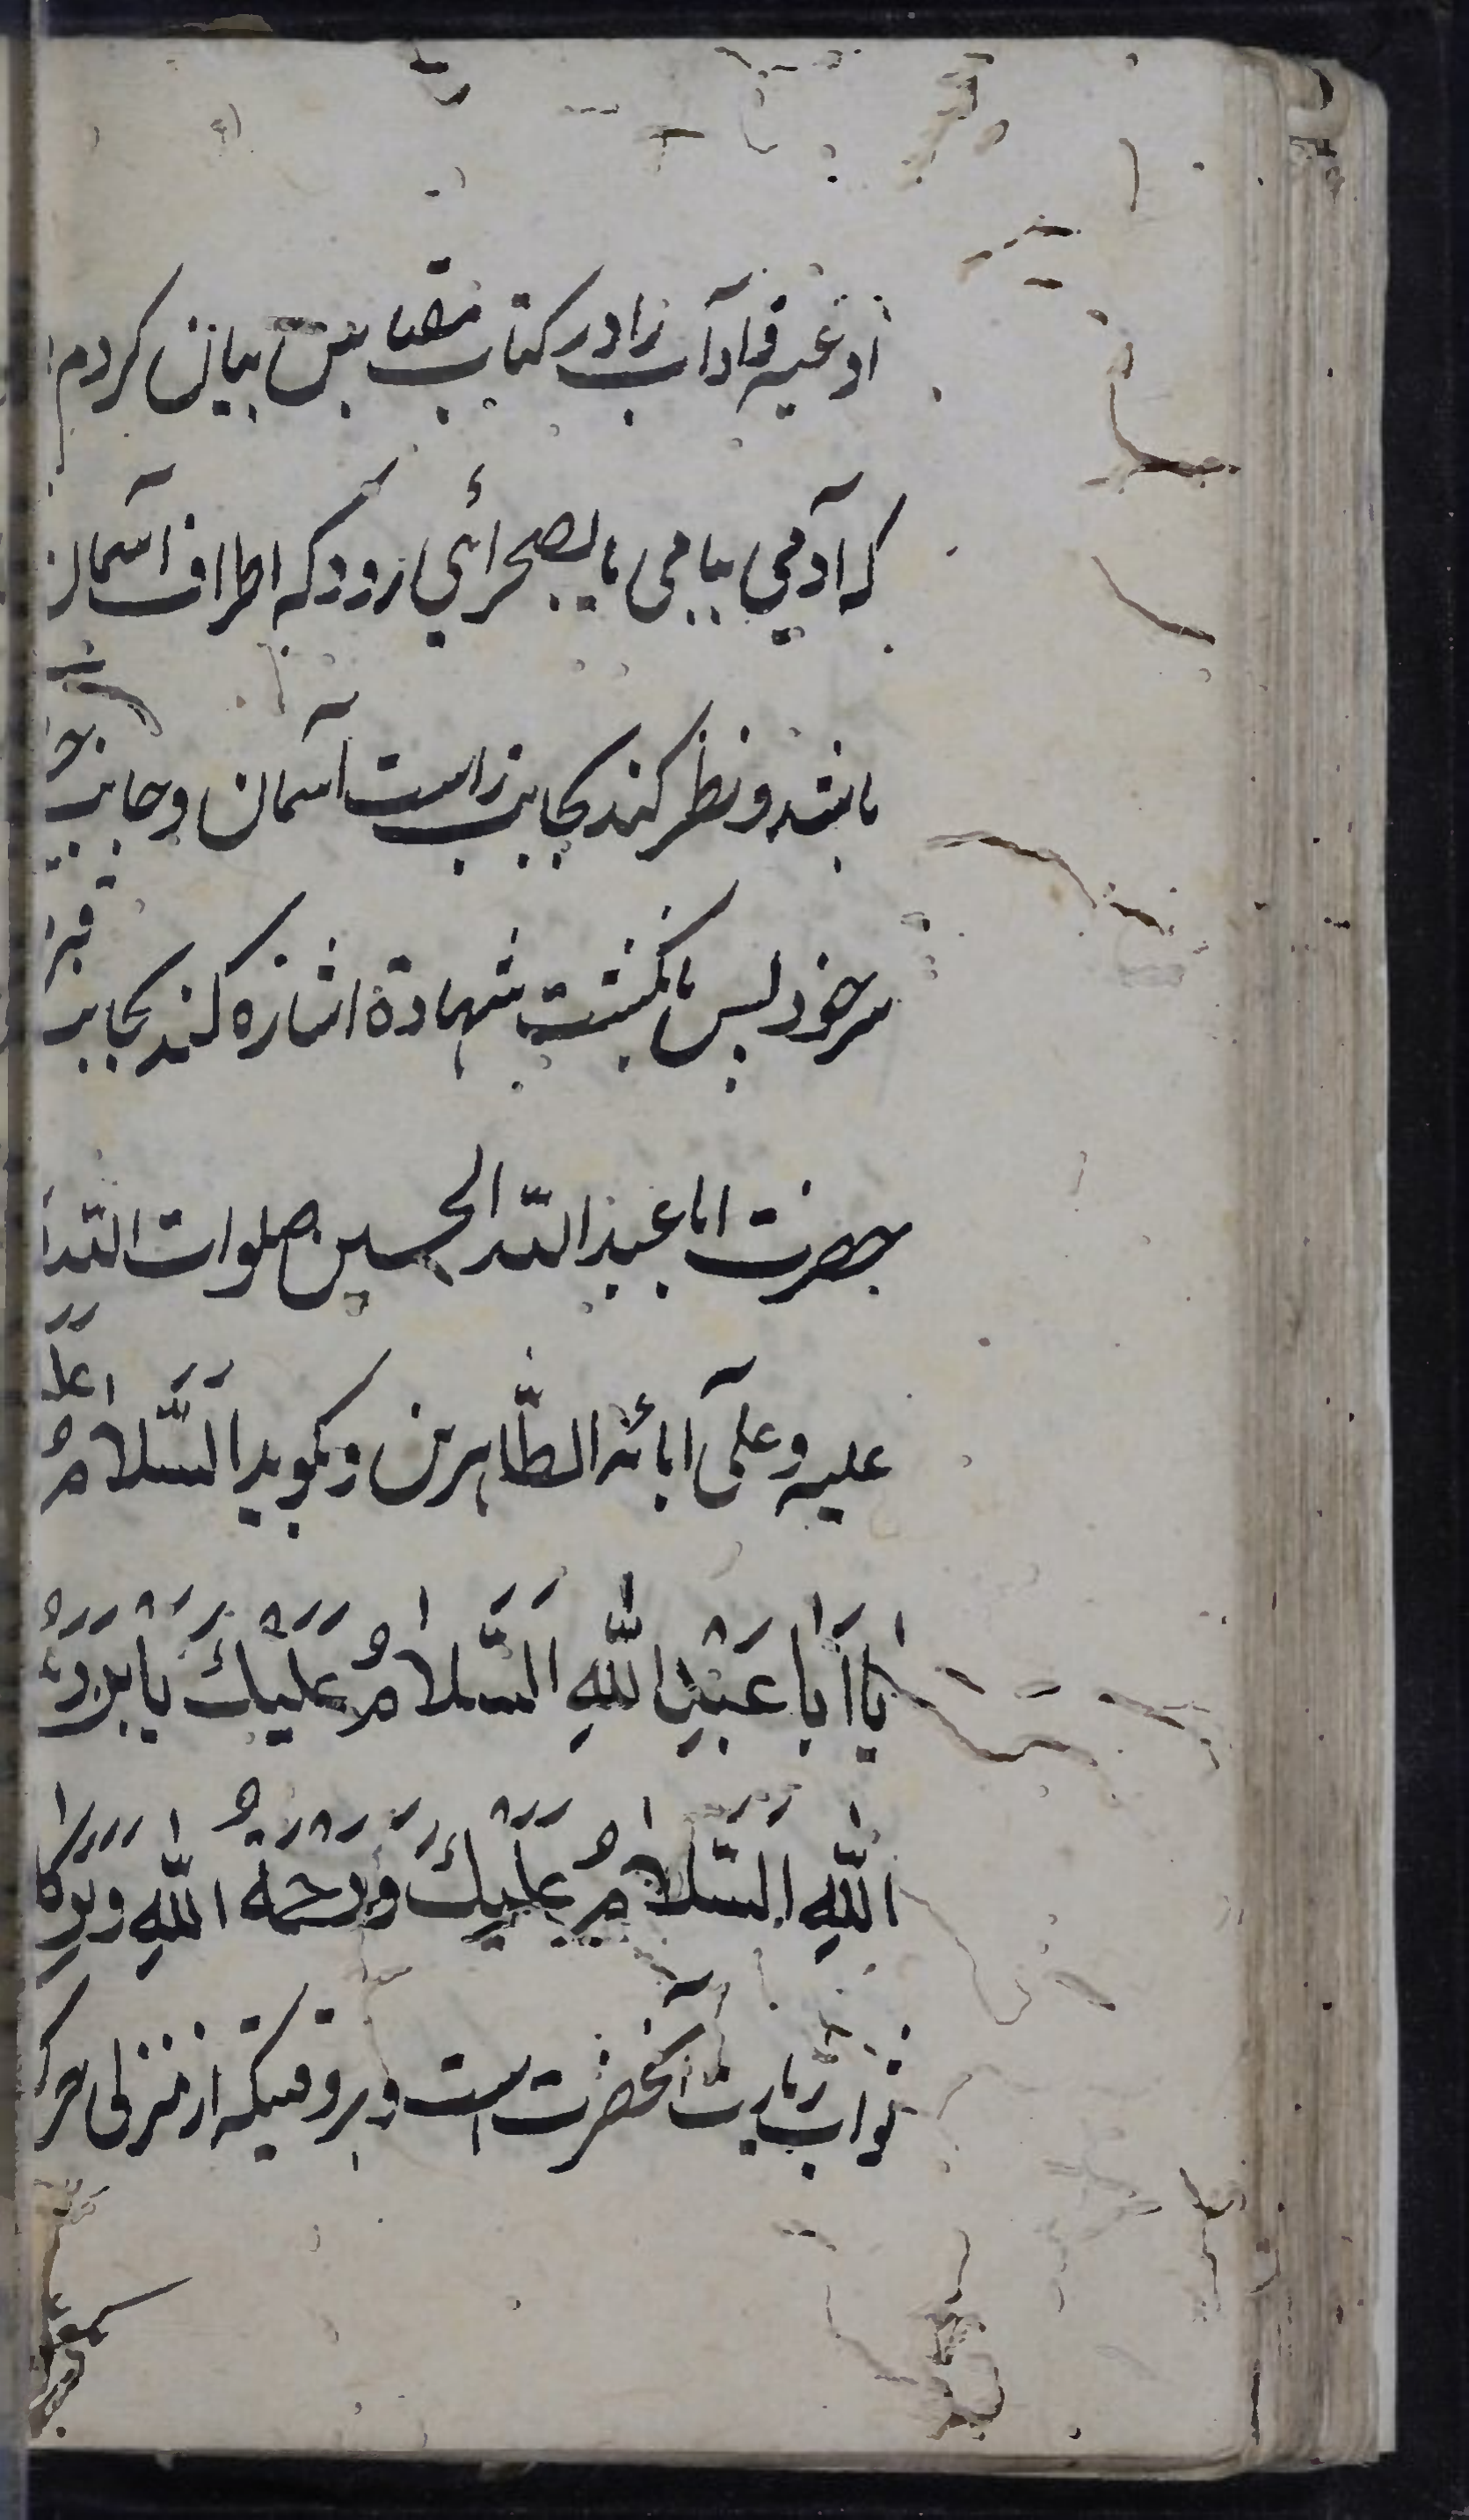 ادعیه و آداب را در کتاب بیان کردم
که آدمی ببامی یا بصحرائی رود که اطراف آسمان
باشد و نظر کند بجانب راست آسمان و جانب
سر خود پس بانگشت شهادة اشاره کند بجانب قبر
حضرت ابا عبد الله الحسین صلوات الله
علیه و علی آبائه الطاهرین و بگوید اَلسَّلامُ عَلَ
یا اَبا عَبْدِ اللهِ اَلسَّلامُ عَلَیْكَ یَا بْنَ رَ
اللهِ اَلسَّلامُ عَلَیْكَ وَ رَحْمَةُ اللهِ وَ بَرَكا
ثواب زیارت آنحضرت است و بروقتیکه از منزلی